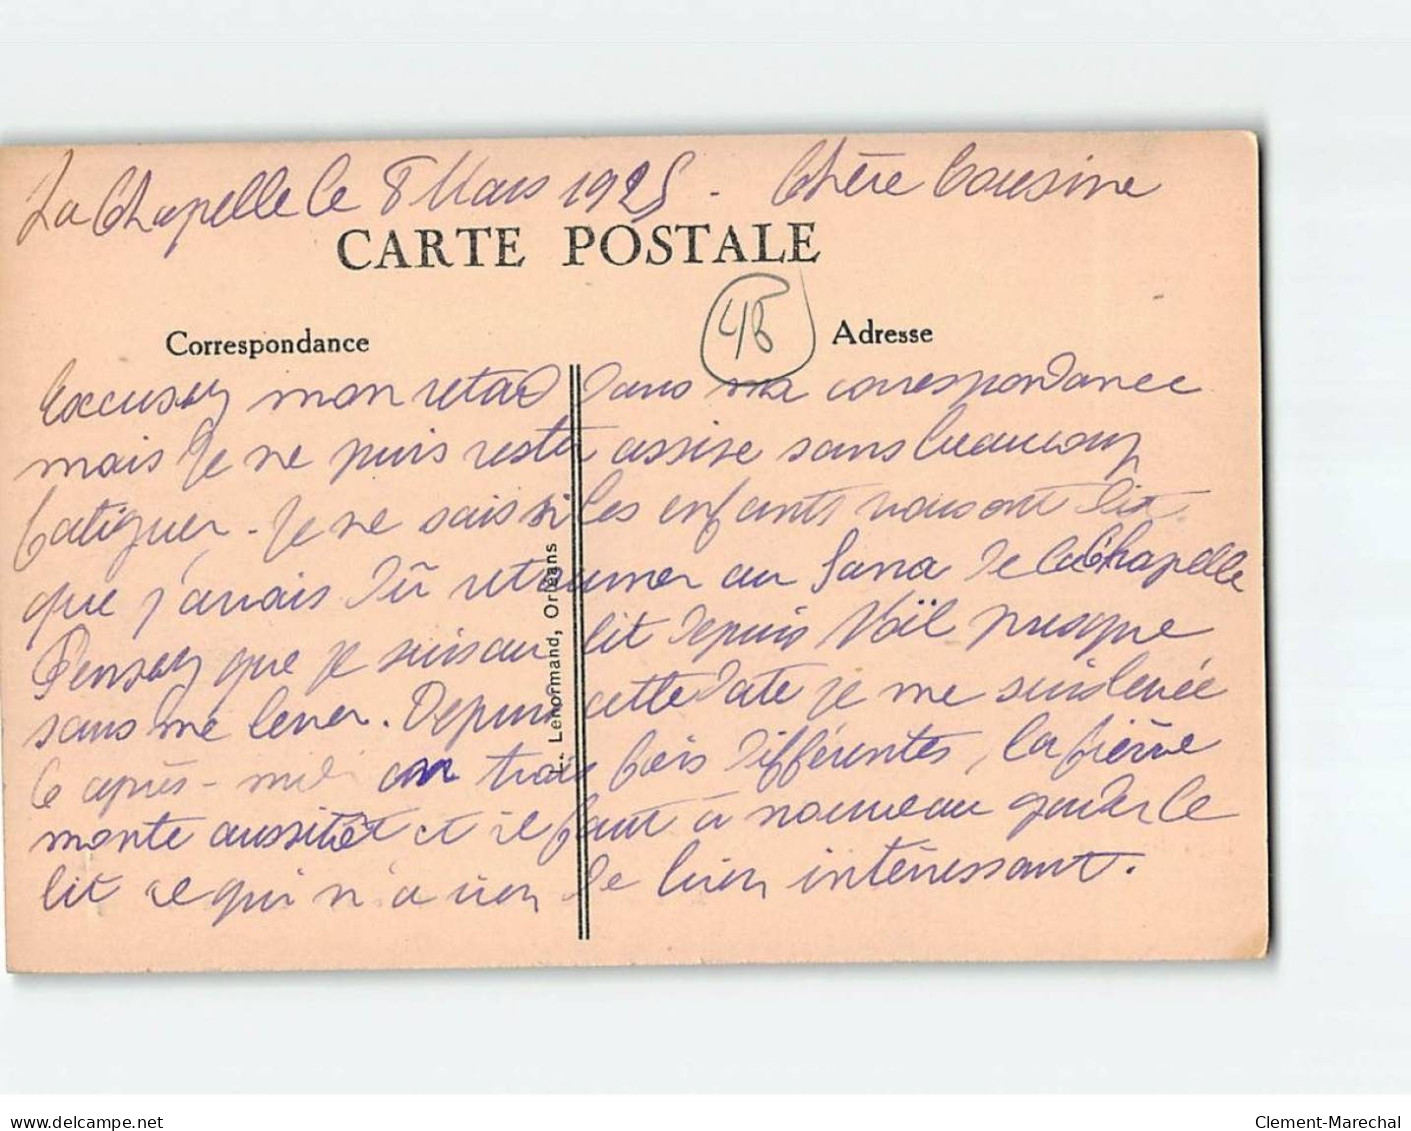 La Chapelle le 8 Mars 1925 - Chère Cousine
CARTE POSTALE
48
Correspondance
Adresse
Excusez mon retad dans ma correspondance
mais je ne puis rester assise sans beaucoup
fatiguer - Je ne sais si les enfants vous ont dit
que j'avais dû retourner au Sana de la Chapelle
Pensez que je suis au lit depuis Noël presque
sans me lever. Depuis cette date je me suis levée
le après-midi en trois fois différentes, la fièvre
monte aussitôt et il faut à nouveau garder le
lit ce qui n'a rien de bien intéressant.
L. Lenormand, Orléans
www.delcampe.net
Clement-Marechal